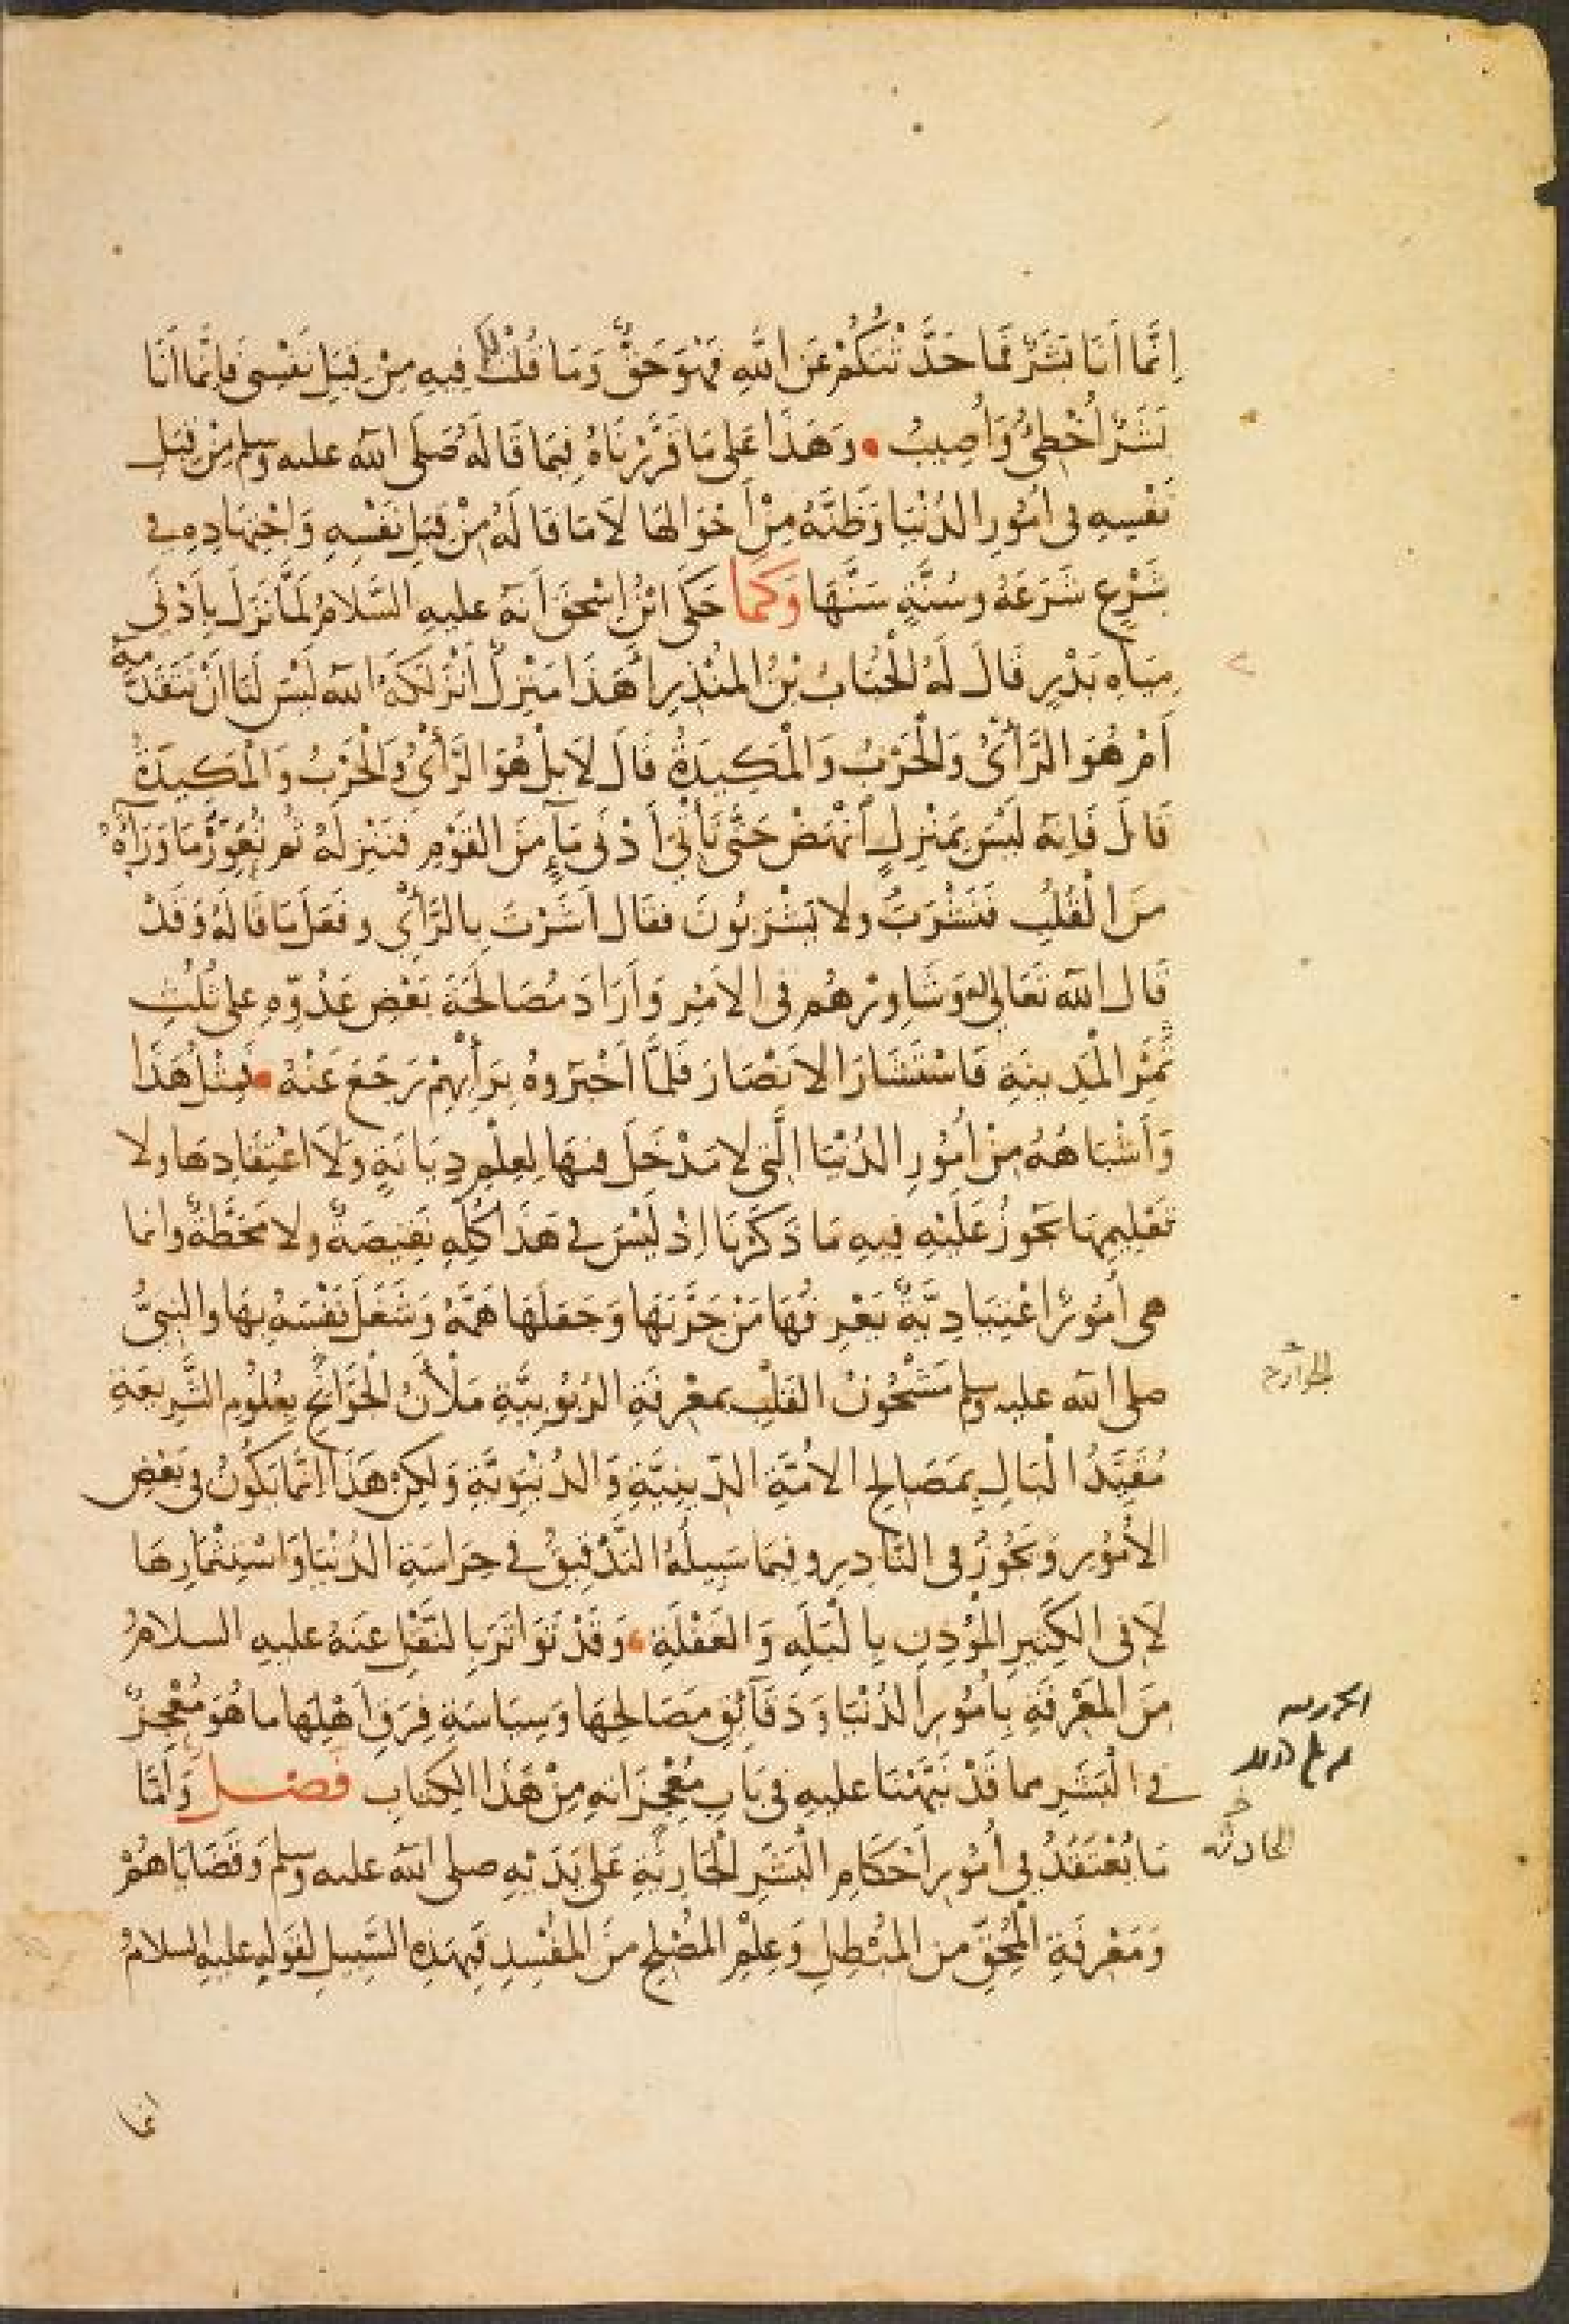 اِنَّمَا اَنَا بَشَرٌ فَمَا حَدَّثْتُكُمْ عَنِ اللّٰهِ فَهُوَ حَقٌّ وَمَا قُلْتُ فِيهِ مِنْ قِبَلِ نَفْسِى فَاِنَّمَا اَنَا
بَشَرٌ اُخْطِئُ وَاُصِيبُ • وَهَذَا عَلَى مَا قَرَّرْنَاهُ فِيمَا قَالَهُ صَلَى الله عليه وسلم مِنْ قِبَلِ
نَفْسِهِ فى اُمُورِ الدُنْيَا وَظَنَّهُ مِنْ اَحْوَالِهَا لَا مَا قَالَهُ مِنْ قِبَلِ نَفْسِهِ وَاجْتِهَادِهِ فى
شَرْعٍ شَرَعَهُ وسُنَّةٍ سَنَّهَا وَكَمَا حَكَى ابْنُ اِسْحَقَ اَنه عليه السَّلامُ لَمَّا نَزَلَ بِاَدْنَى
مِيَاهِ بَدْرٍ قَالَ لَهُ الْحُبَابُ بْنُ المُنْذِرِ اَهَذَا مَنْزِلٌ اَنْزَلَكَهُ الله لَيْسَ لَنَا اَنْ نَتَقَدَّمَهُ
اَمْ هُوَ الرَّأىُ وَالْحَرْبُ وَالْمَكِيدَةُ قَالَ لَا بَلْ هُوَ الرَّأىُ وَالْحَرْبُ وَالْمَكِيدَةُ
قَالَ فَاِنه لَيْسَ بِمَنْزِلٍ اَنْهَضْ حَتَّى نَأْتِىَ اَدْنَى مَآءٍ مِنَ القَوْمِ فَنَنْزِلَهُ ثُم نُعَوِّرُ مَا وَرَآءَهُ
مِنَ الْقُلُبِ فَنَشْرَبُ ولا يَشْرَبُونَ فقَال اَشَرْتَ بِالرَّأىِ وفَعَلَ مَا قَالَهُ وَقَدْ
قَال الله تَعَالى له وَشَاوِرْهُم فى الاَمْرِ وَاَرَادَ مُصَالَحَةَ بَعْضِ عَدُوِّهِ على ثُلُثِ
ثَمَرِ الْمَدِينَةِ فَاسْتَشَارَ الاَنْصَارَ فَلَمَّا اَخْبَرُوهُ بِرَأيِهِمْ رَجَعَ عَنْهُ • فَمِثْلُ هَذَا
وَاَشْبَاهُهُ مِنْ اُمُورِ الدُنْيَا الَّتِى لا مَدْخَلَ فيهَا لِعِلْمِ دِيَانَةٍ وَلَا اعْتِقَادِهَا ولا
تَعْلِيمِهَا يَجُوزُ عَلَيْهِ فِيهِ مَا ذَكَرْنَا اِذْ لَيْسَ فى هَذَا كُلِّهِ نَقِيصَةٌ ولا مَحَطَّةٌ وانما
هى اُمُورٌ اعْتِيَادِيَّةٌ يَعْرِفُهَا مَنْ جَرَّبَهَا وَجَعَلَهَا هَمَّهُ وَشَغَلَ نَفْسَهُ بِهَا والنبىُّ
صلى الله عليه وسلم مَشْحُونُ القَلْبِ بِمَعْرِفَةِ الرُبُوبِيَّةِ مَلْأنُ الْجَوَانِحِ بِعُلُومِ الشَّرِيعَةِ
الجوارح
مُقَيَّدُ الْبَالِ بِمَصَالِحِ الامَّةِ الدّينِيَّةِ وَالدُنْيَوِيَّةِ وَلَكِنْ هَذَا اِنَّمَا يَكُونُ فى بَعْضِ
الاُمُورِ وَيَجُوزُ فى النَّادِرِ وفِيمَا سَبِيلُهُ التَّدْقِيقُ فى حِرَاسَةِ الدُنْيَا وَاسْتِثْمَارِهَا
لَا فى الكَثِيرِ الْمُؤْذِنِ بِالْبَلَهِ وَالغَفْلَةِ • وَقَدْ تَوَاتَرَ بِالنَّقْلِ عَنهُ عليهِ السلامُ
مِنَ المَعْرِفَةِ بِاُمُورِ الدُنْيَا وَدَقَآئِقِ مَصَالِحِهَا وَسِيَاسَةِ فِرَقِ اَهْلِهَا ما هُوَ مُعْجِزٌ
فى الْبَشَرِ مما قَدْ نَبَّهْنَا عليهِ فى بَابِ مُعْجِزَاتِهِ مِنْ هَذَا الكِتَابِ فَصْل وَاَمَّا
مَا يَعْتَقِدُ فى اُمُورِ اَحْكَامِ الْبَشَرِ الْجَارِيَةِ عَلَى يَدَيْهِ صلى الله عليه وسلم وَقَضَايَاهُمْ
الحادثة خ
وَمَعْرِفَةِ الْمُحِقِّ مِنَ المُبْطِلِ وَعِلْمِ المُصْلِحِ مِنَ المُفْسِدِ فَبِهَذِهِ السَّبِيلِ لقَولِهِ عليهِ السلامُ
انما